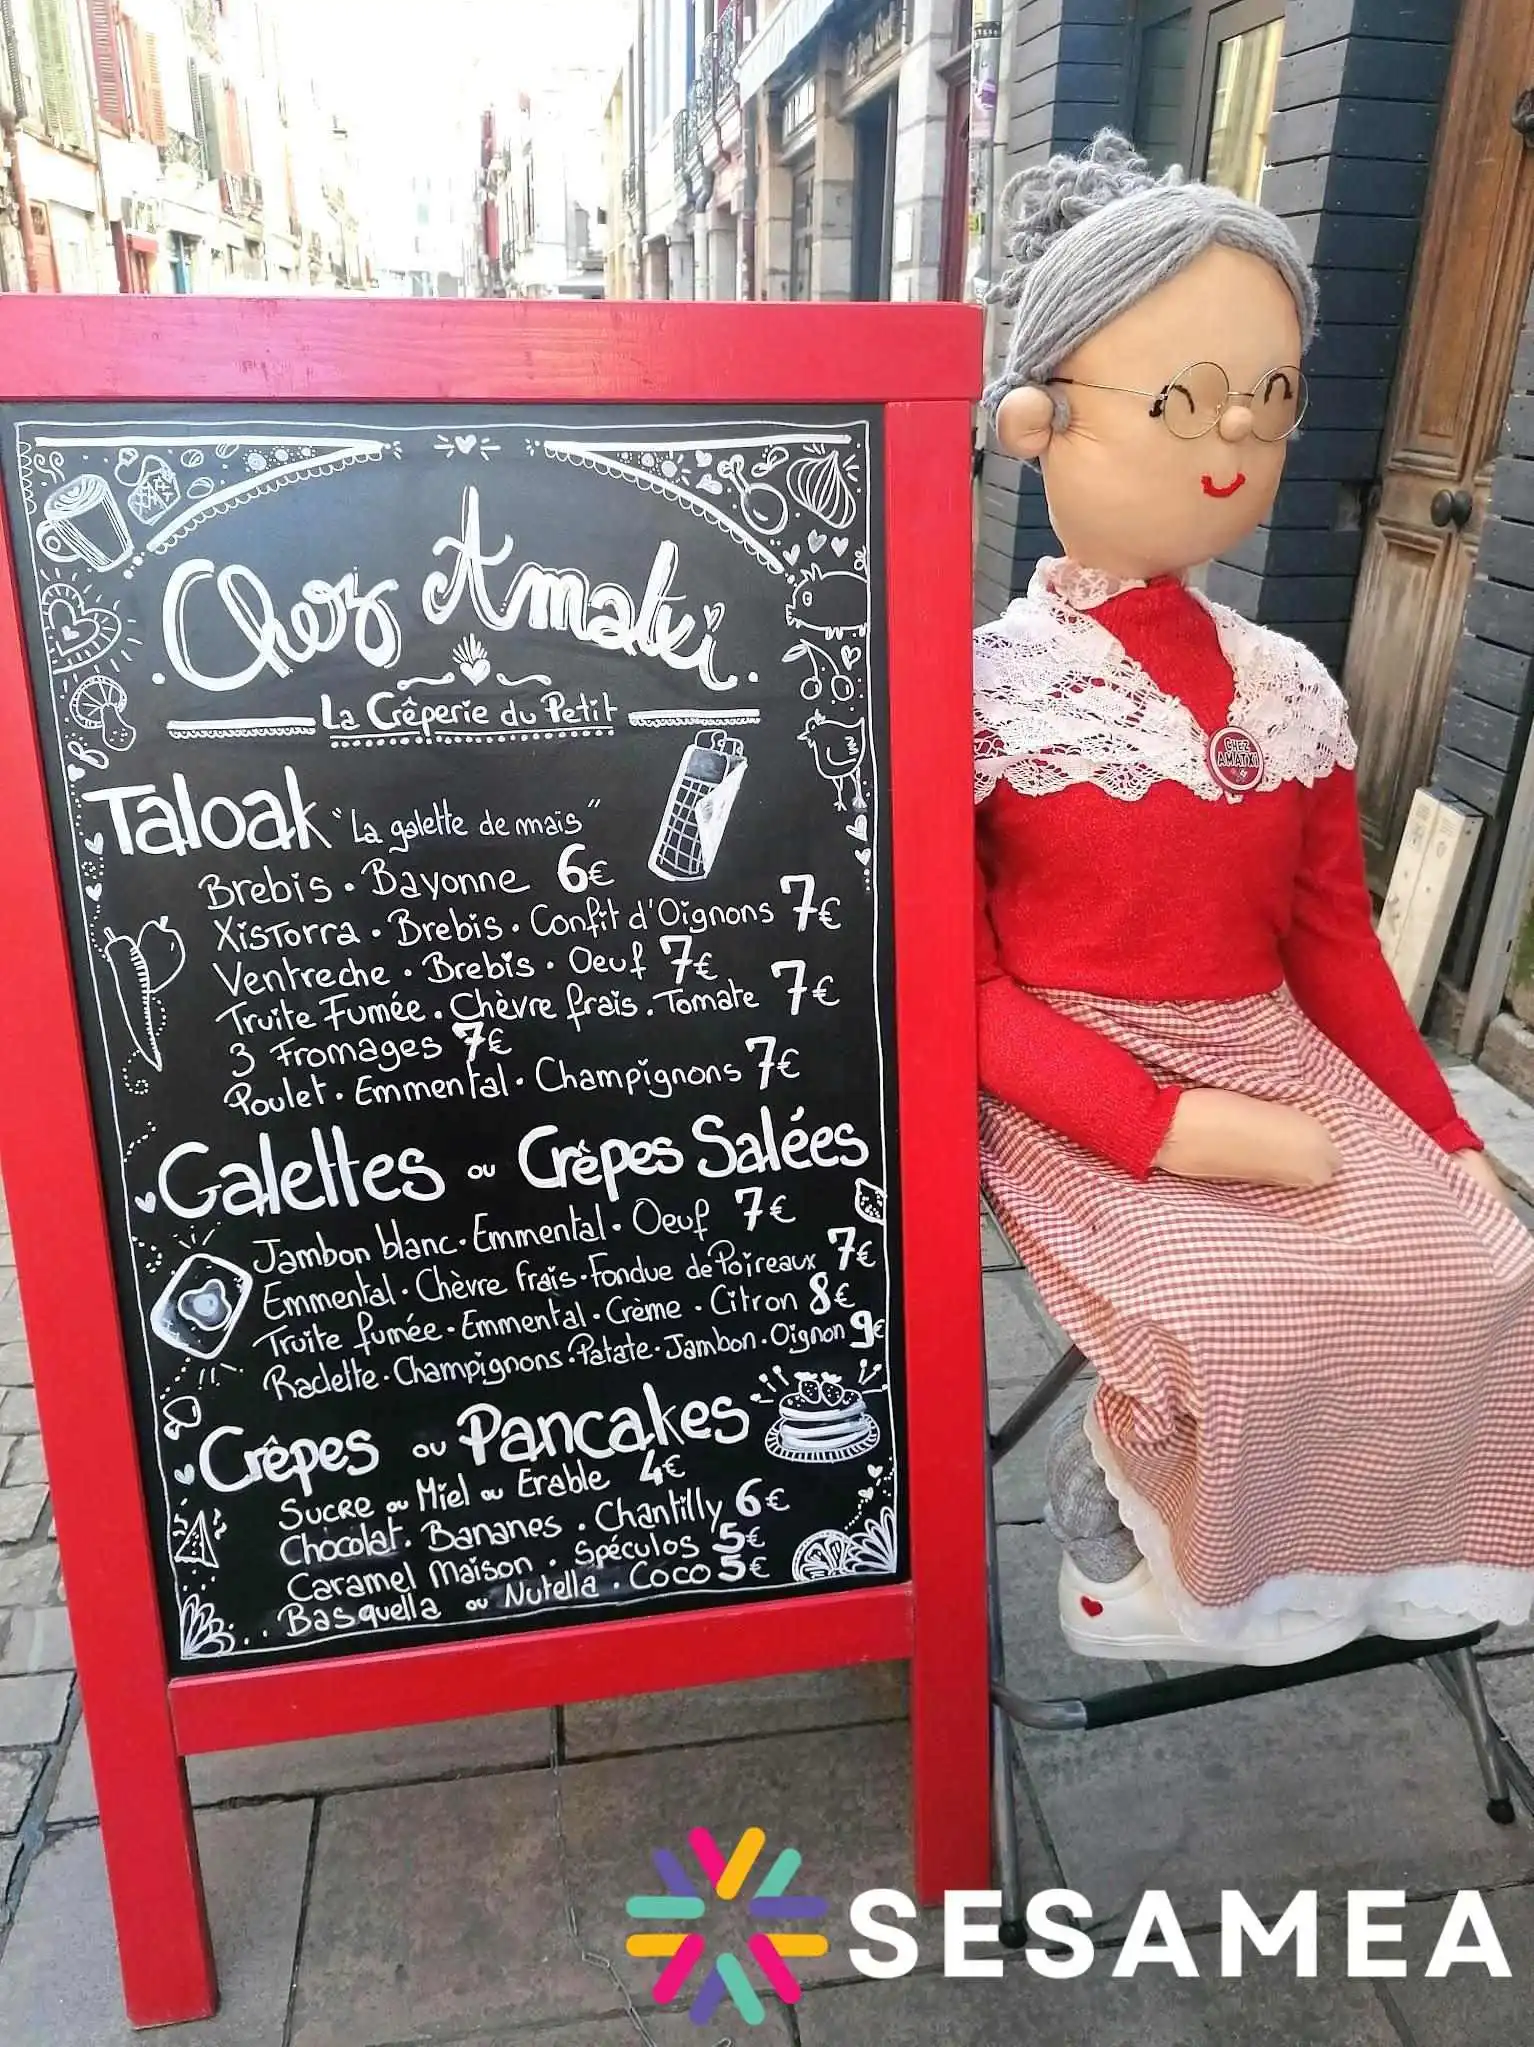 Chez Amatxi
La Crêperie du Petit
Taloak "La galette de maïs"
Brebis . Bayonne 6€
Xistorra . Brebis . Confit d'Oignons 7€
Ventreche . Brebis . Oeuf 7€
Truite Fumée . Chèvre frais . Tomate 7€
3 Fromages 7€
Poulet . Emmental . Champignons 7€
Galettes ou Crêpes Salées
Jambon blanc . Emmental . Oeuf 7€
Emmental . Chèvre frais . Fondue de Poireaux 7€
Truite fumée . Emmental . Crème . Citron 8€
Raclette . Champignons . Patate . Jambon . Oignon 9€
Crêpes ou Pancakes
Sucre ou Miel ou Erable 4€
Chocolat . Bananes . Chantilly 6€
Caramel Maison . Spéculos 5€
Basquella ou Nutella . Coco 5€
CHEZ
AMATXI
SESAMEA